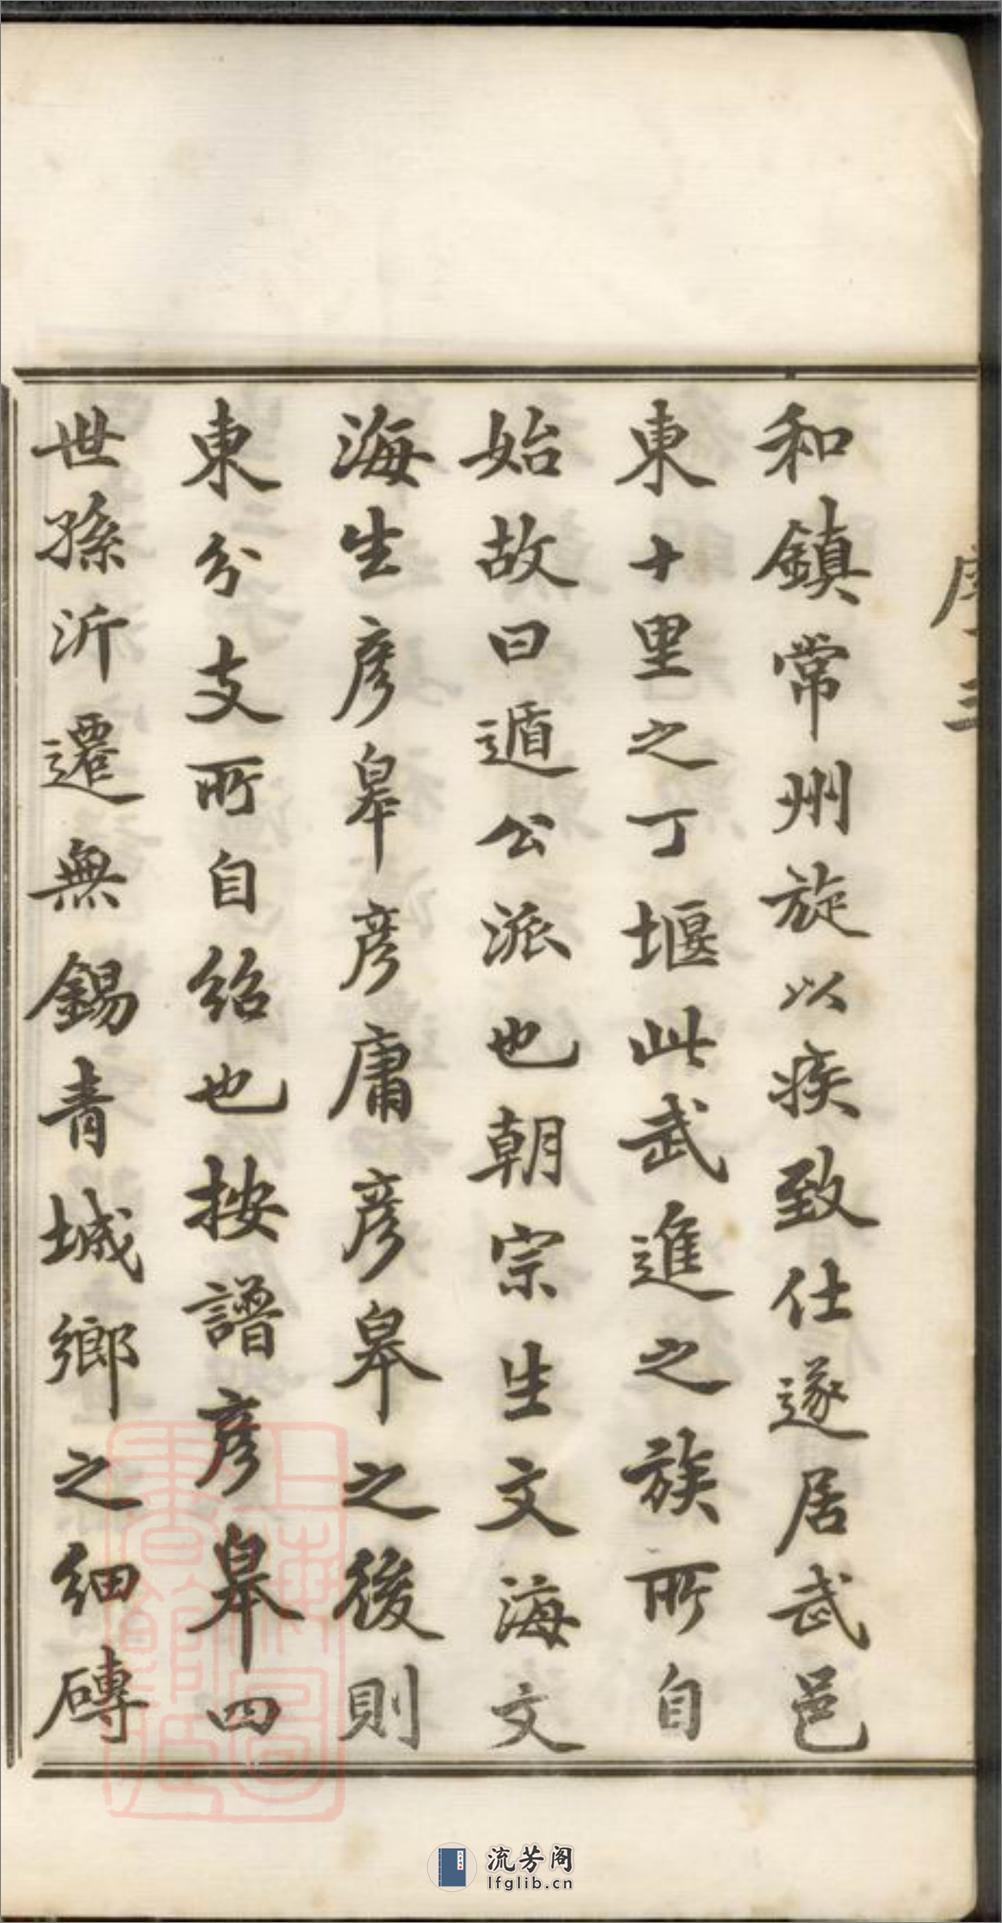 和鎮常州旋以疾致仕遂居武邑
東十里之丁堰此武進之族所自
始故曰遁公派也朝宗生文海文
海生彦皋彦庸彦皋之後則
東分支所自紿也按譜彦皋四
世孫沂遷無錫青城鄉之細磚
流芳阁
lfglib.cn